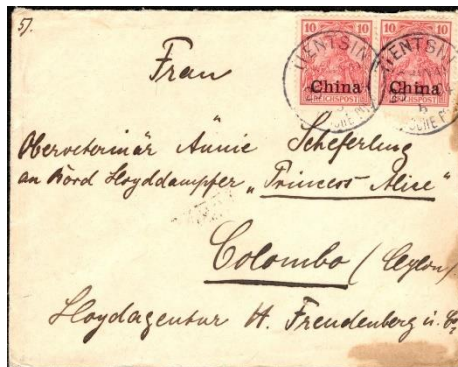 57.
10 10 10 10
TIENTSIN TIENTSIN
China China
REICHSPOST REICHSPOST
Frau
Oberveterinär Ännie Scheferling
an Bord Lloyddampfer „Princess Alice"
Colombo (Ceylon)
Lloydagentur H. Freudenberg u. Co.